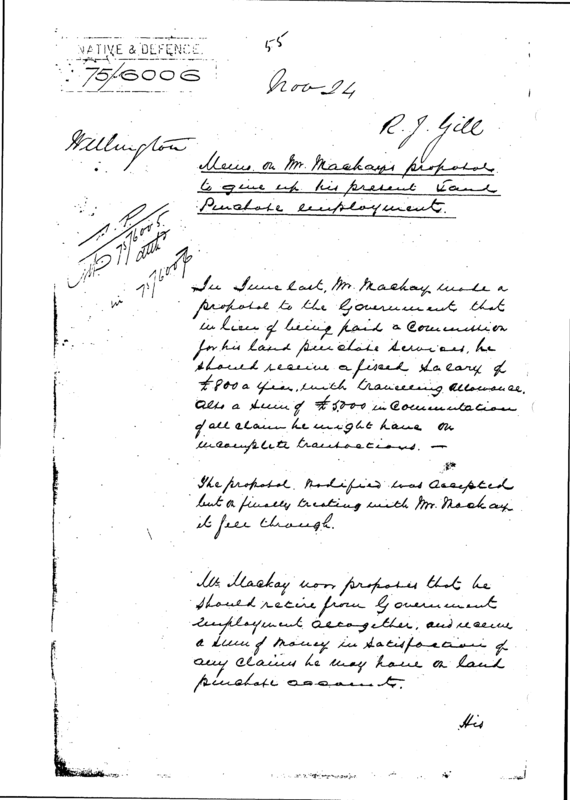 55
NATIVE & DEFENCE.
75/6006
Nov 24
R. J. Gill
Wellington
Memo. on Mr. Mackays proposal
to give up his present Land
Purchase employment.
75/6005
in 75/6006
In June last, Mr. Mackay made a
proposal to the Government that
in lieu of being paid a Commission
for his land purchase services, he
should receive a fixed Salary of
£800 a year, with travelling allowance.
Also a Sum of £5000 in Commutation
of all claim he might have on
incomplete transactions. —
The proposal modified was accepted
but on finally treating with Mr. Mackay
it fell through.
Mr. Mackay now proposes that he
should retire from Government
employment altogether, and receive
a sum of money in Satisfaction of
any claims he may have on land
purchase accounts.
His